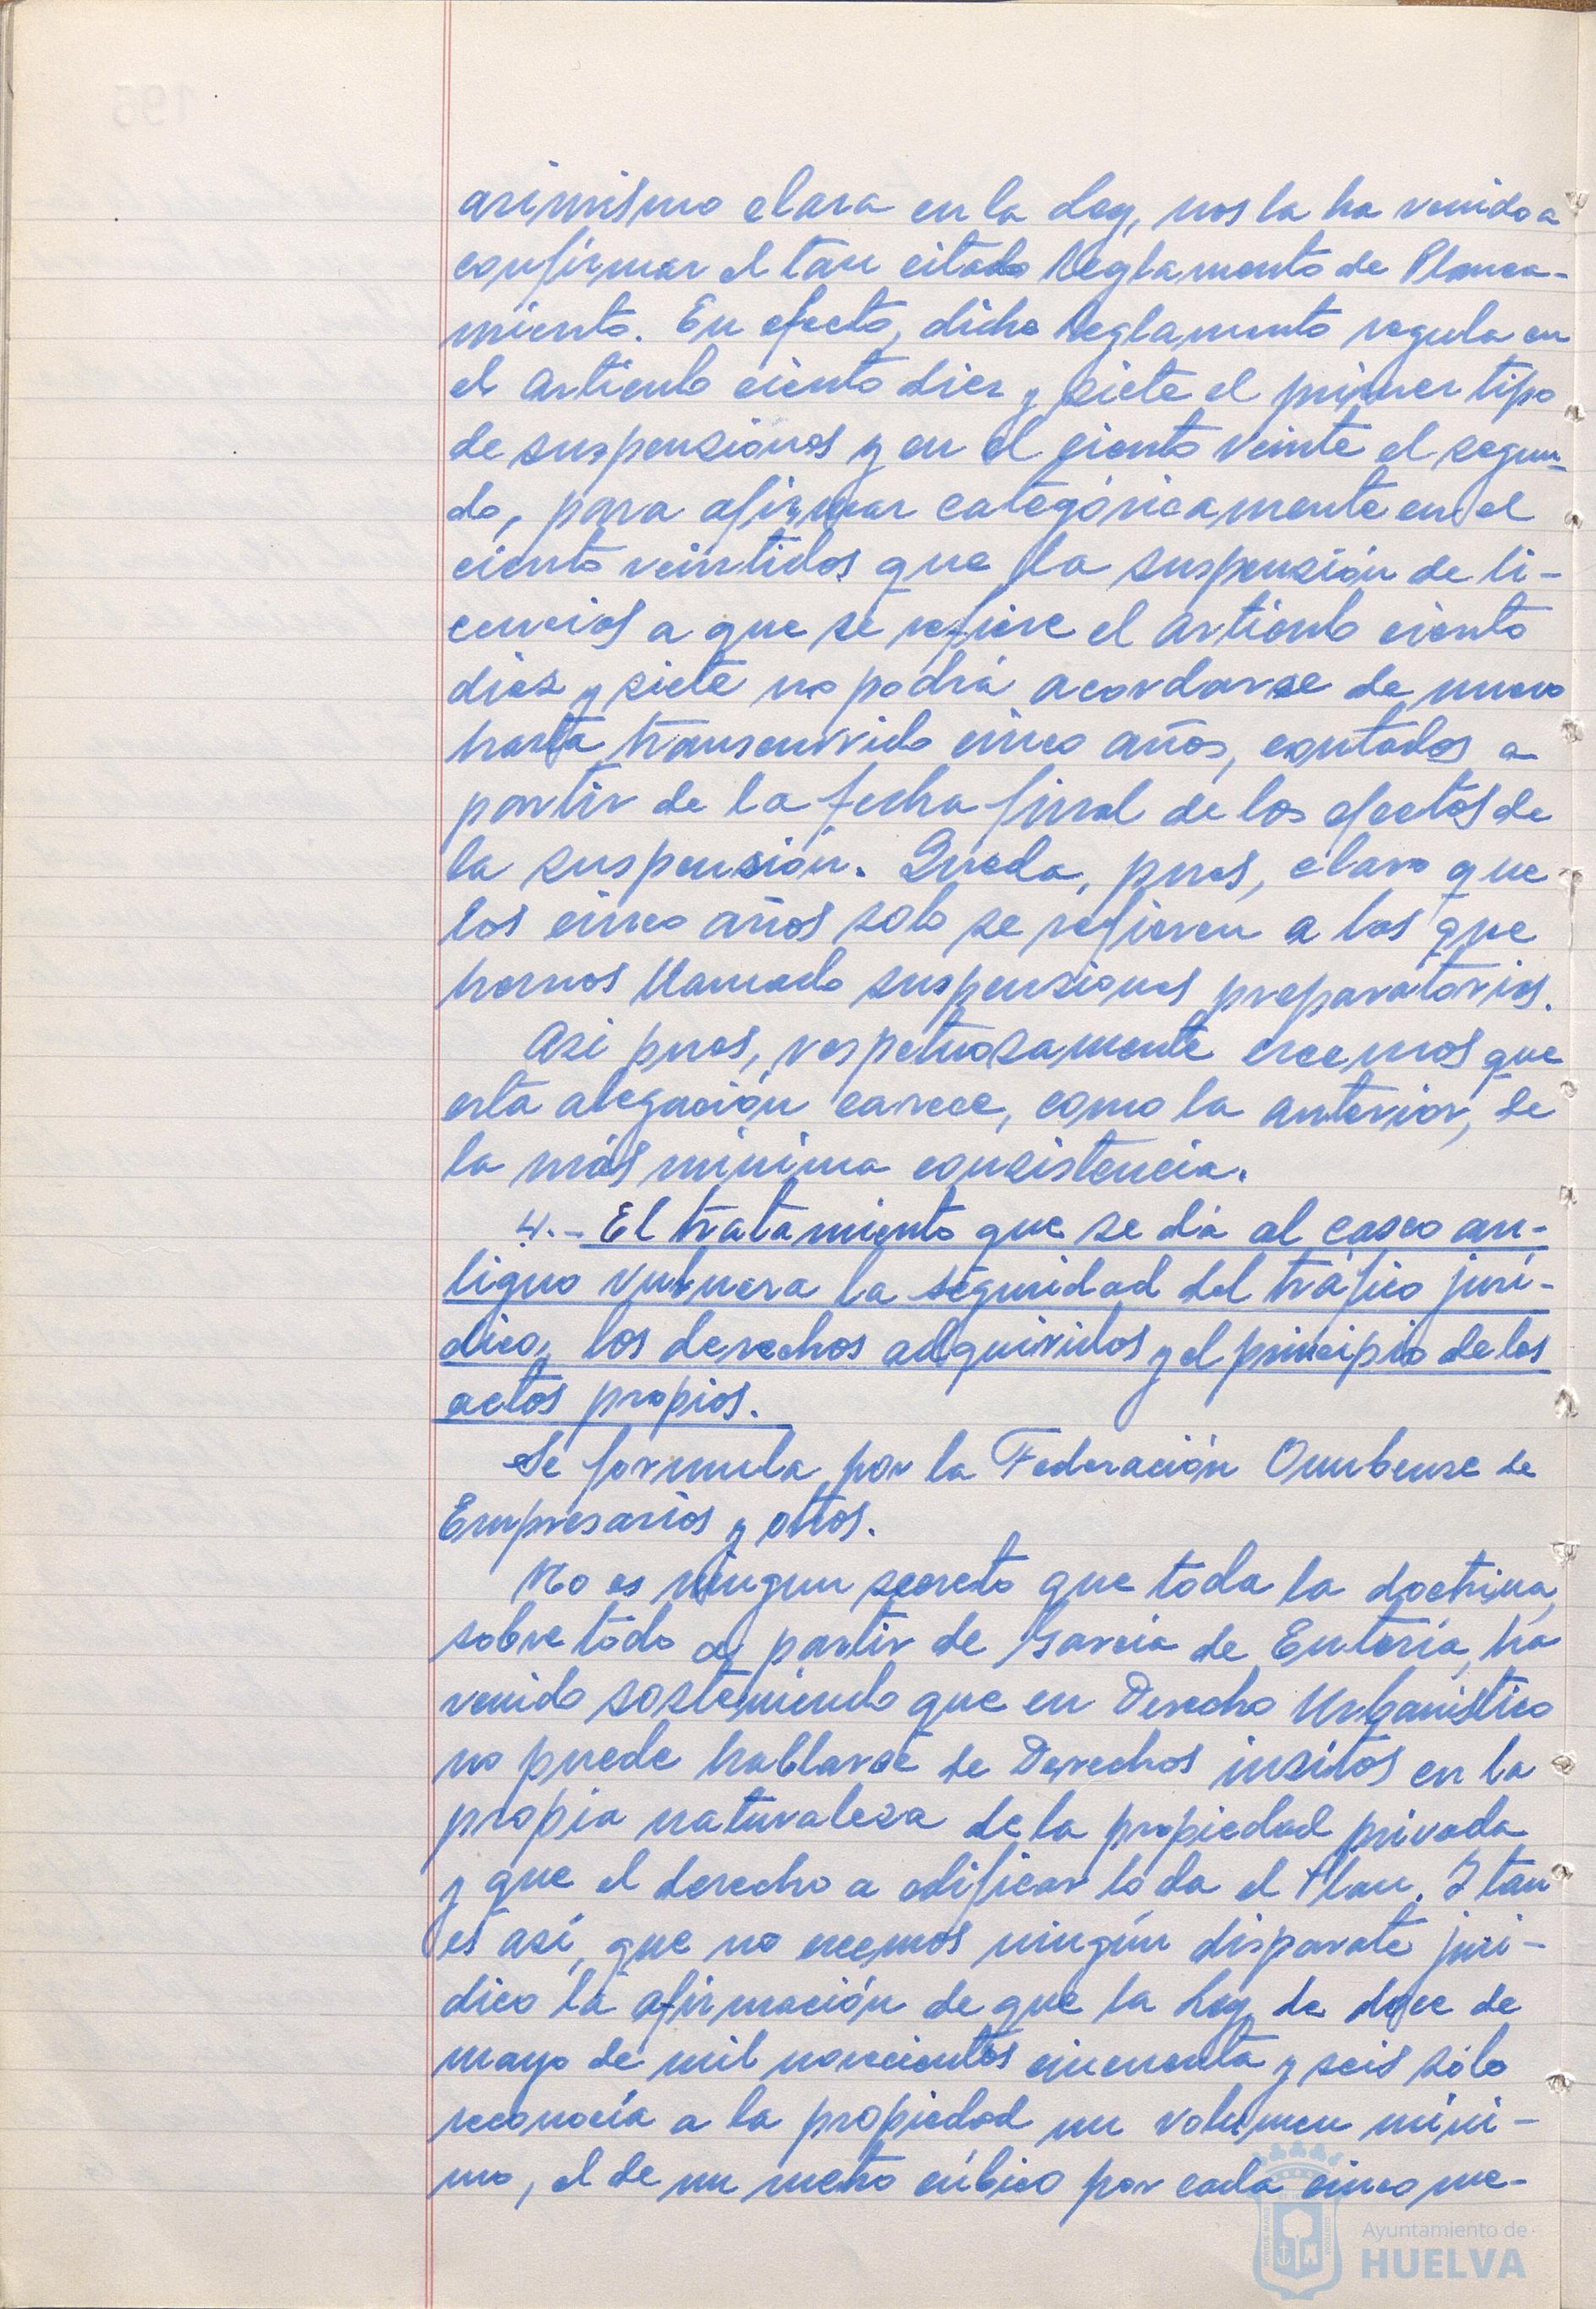 asimismo clara en la Ley, nos la ha venido a
confirmar el tan citado Reglamento de Planea-
miento. En efecto, dicho Reglamento regula en
el artículo ciento diez y siete el primer tipo
de suspensiones y en el ciento veinte el segun-
do, para afirmar categóricamente en el
ciento veintidos que la suspensión de li-
cencias a que se refiere el artículo ciento
diez y siete no podrá acordarse de nuevo
hasta transcurrido cinco años, contados a
partir de la fecha final de los efectos de
la suspensión. Queda, pues, claro que
los cinco años solo se refieren a las que
hemos llamado suspensiones preparatorias.
Asi pues, respetuosamente creemos que
esta alegación carece, como la anterior, de
la más minima consistencia.
4.- El tratamiento que se dá al casco an-
tiguo vulnera la seguridad del tráfico jurí-
dico, los derechos adquiridos y el principio de los
actos propios.
Se formula por la Federación Onubense de
Empresarios y otros.
No es ningun secreto que toda la doctrina,
sobre todo a partir de Garcia de Enteria, ha
venido sosteniendo que en Derecho Urbanistico
no puede hablarse de Derechos insitos en la
propia naturaleza de la propiedad privada
y que el derecho a edificar lo da el Plan. Y tan
es así, que no creemos ningún disparate juri-
dico la afirmación de que la Ley de doce de
mayo de mil novecientos cincuenta y seis sólo
reconocía a la propiedad un volumen míni-
mo, el de un metro cúbico por cada cinco me-
195
Ayuntamiento de
HUELVA